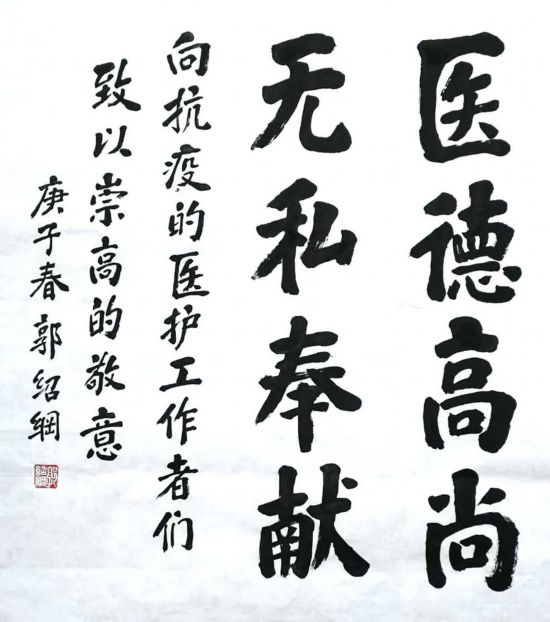 医德高尚
无私奉献
向抗疫的医护工作者们
致以崇高的敬意
庚子春郭绍綱